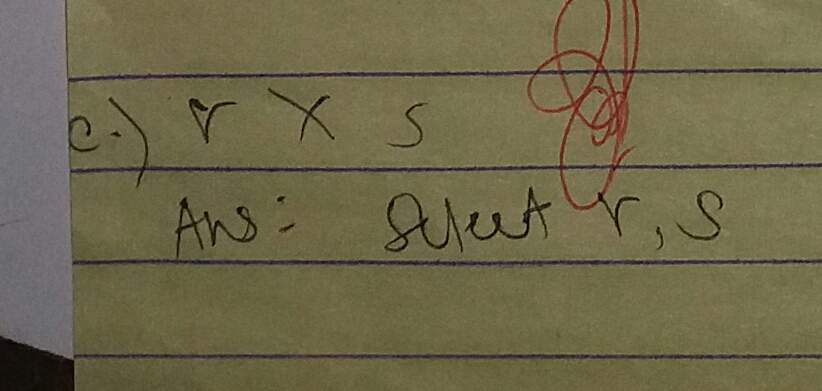 c.) r X s
Ans: Select r, s